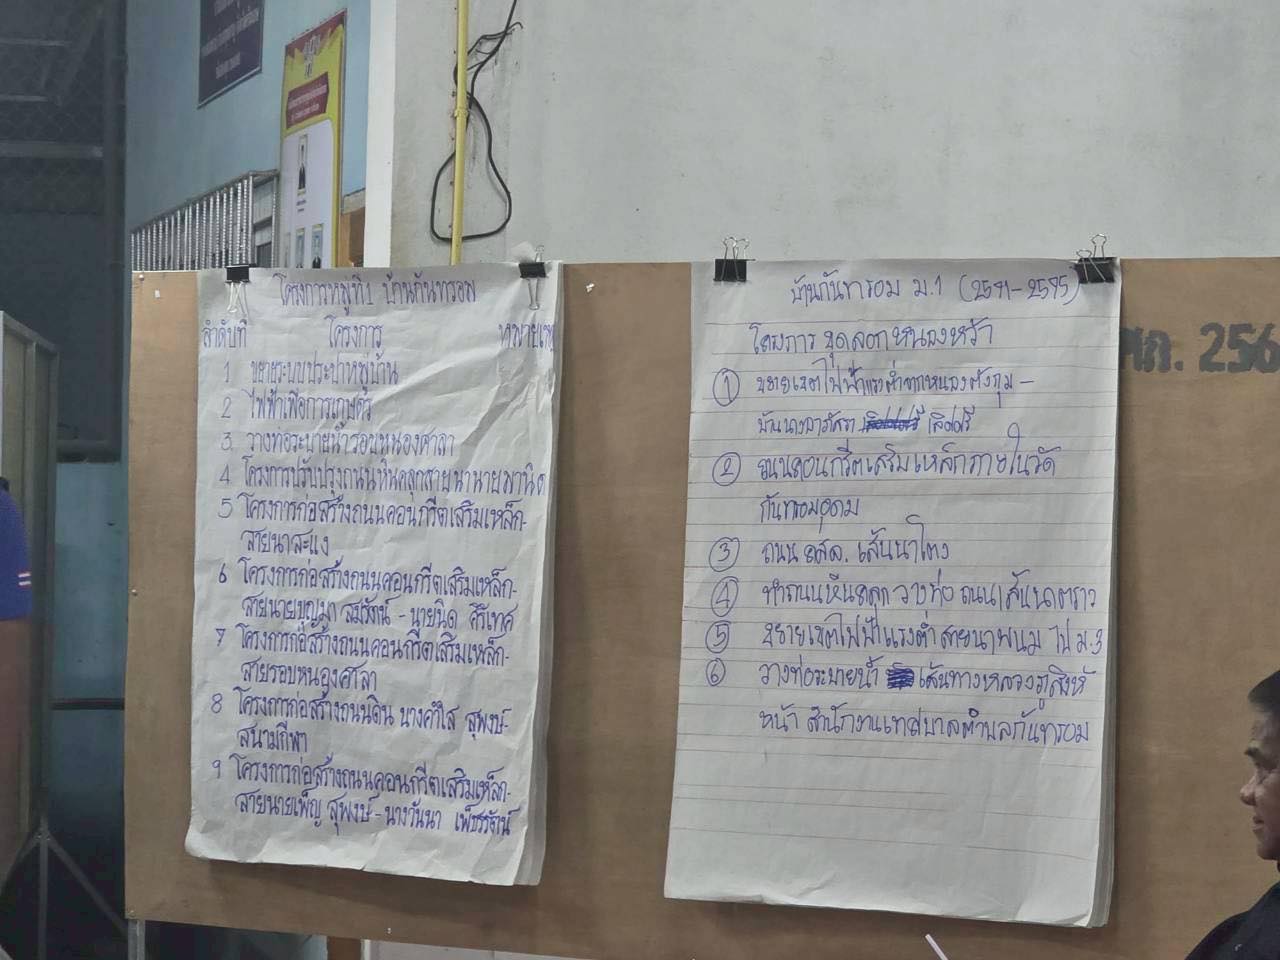 โครงการหมู่ที่1 บ้านกันทรอม
ลำดับที่ โครงการ หมายเหตุ
1 ขยายระบบประปาหมู่บ้าน
2 ไฟฟ้าเพื่อการเกษตร
3 วางท่อระบายน้ำรอบหนองศาลา
4 โครงการปรับปรุงถนนหินคลุกสายนานายพานิต
5 โครงการก่อสร้างถนนคอนกรีตเสริมเหล็ก-
สายนาสะแบง
6 โครงการก่อสร้างถนนคอนกรีตเสริมเหล็ก-
สายนายบุญมา สมรัตน์ - นายนิด ศิริเทศ
7 โครงการก่อสร้างถนนคอนกรีตเสริมเหล็ก-
สายรอบหนองศาลา
8 โครงการก่อสร้างถนนดิน นางคำใส สุพงษ์-
สนามกีฬา
9 โครงการก่อสร้างถนนคอนกรีตเสริมเหล็ก-
สายนายเพ็ญ สุพงษ์ - นางวันนา เพ็ชรรัตน์
บ้านกันทรอม ม.1 (2571-2575)
โครงการ ขุดลอกหนองหว้า
① ขยายเขตไฟฟ้าแรงต่ำจากหนองตังกุม -
บ้านนาง
② ถนนคอนกรีตเสริมเหล็กภายในวัด
กันทรอมอุดม
③ ถนน คสล. เส้นนาโตง
④ ทำถนนหินคลุก วางท่อ ถนนเส้นนาตราว
⑤ ขยายเขตไฟฟ้าแรงต่ำ สายนาพนม ไป ม.3
⑥ วางท่อระบายน้ำ เส้นทางหลวงภูสิงห์
หน้า สำนักงานเทศบาลตำบลกันทรอม
ศก. 256